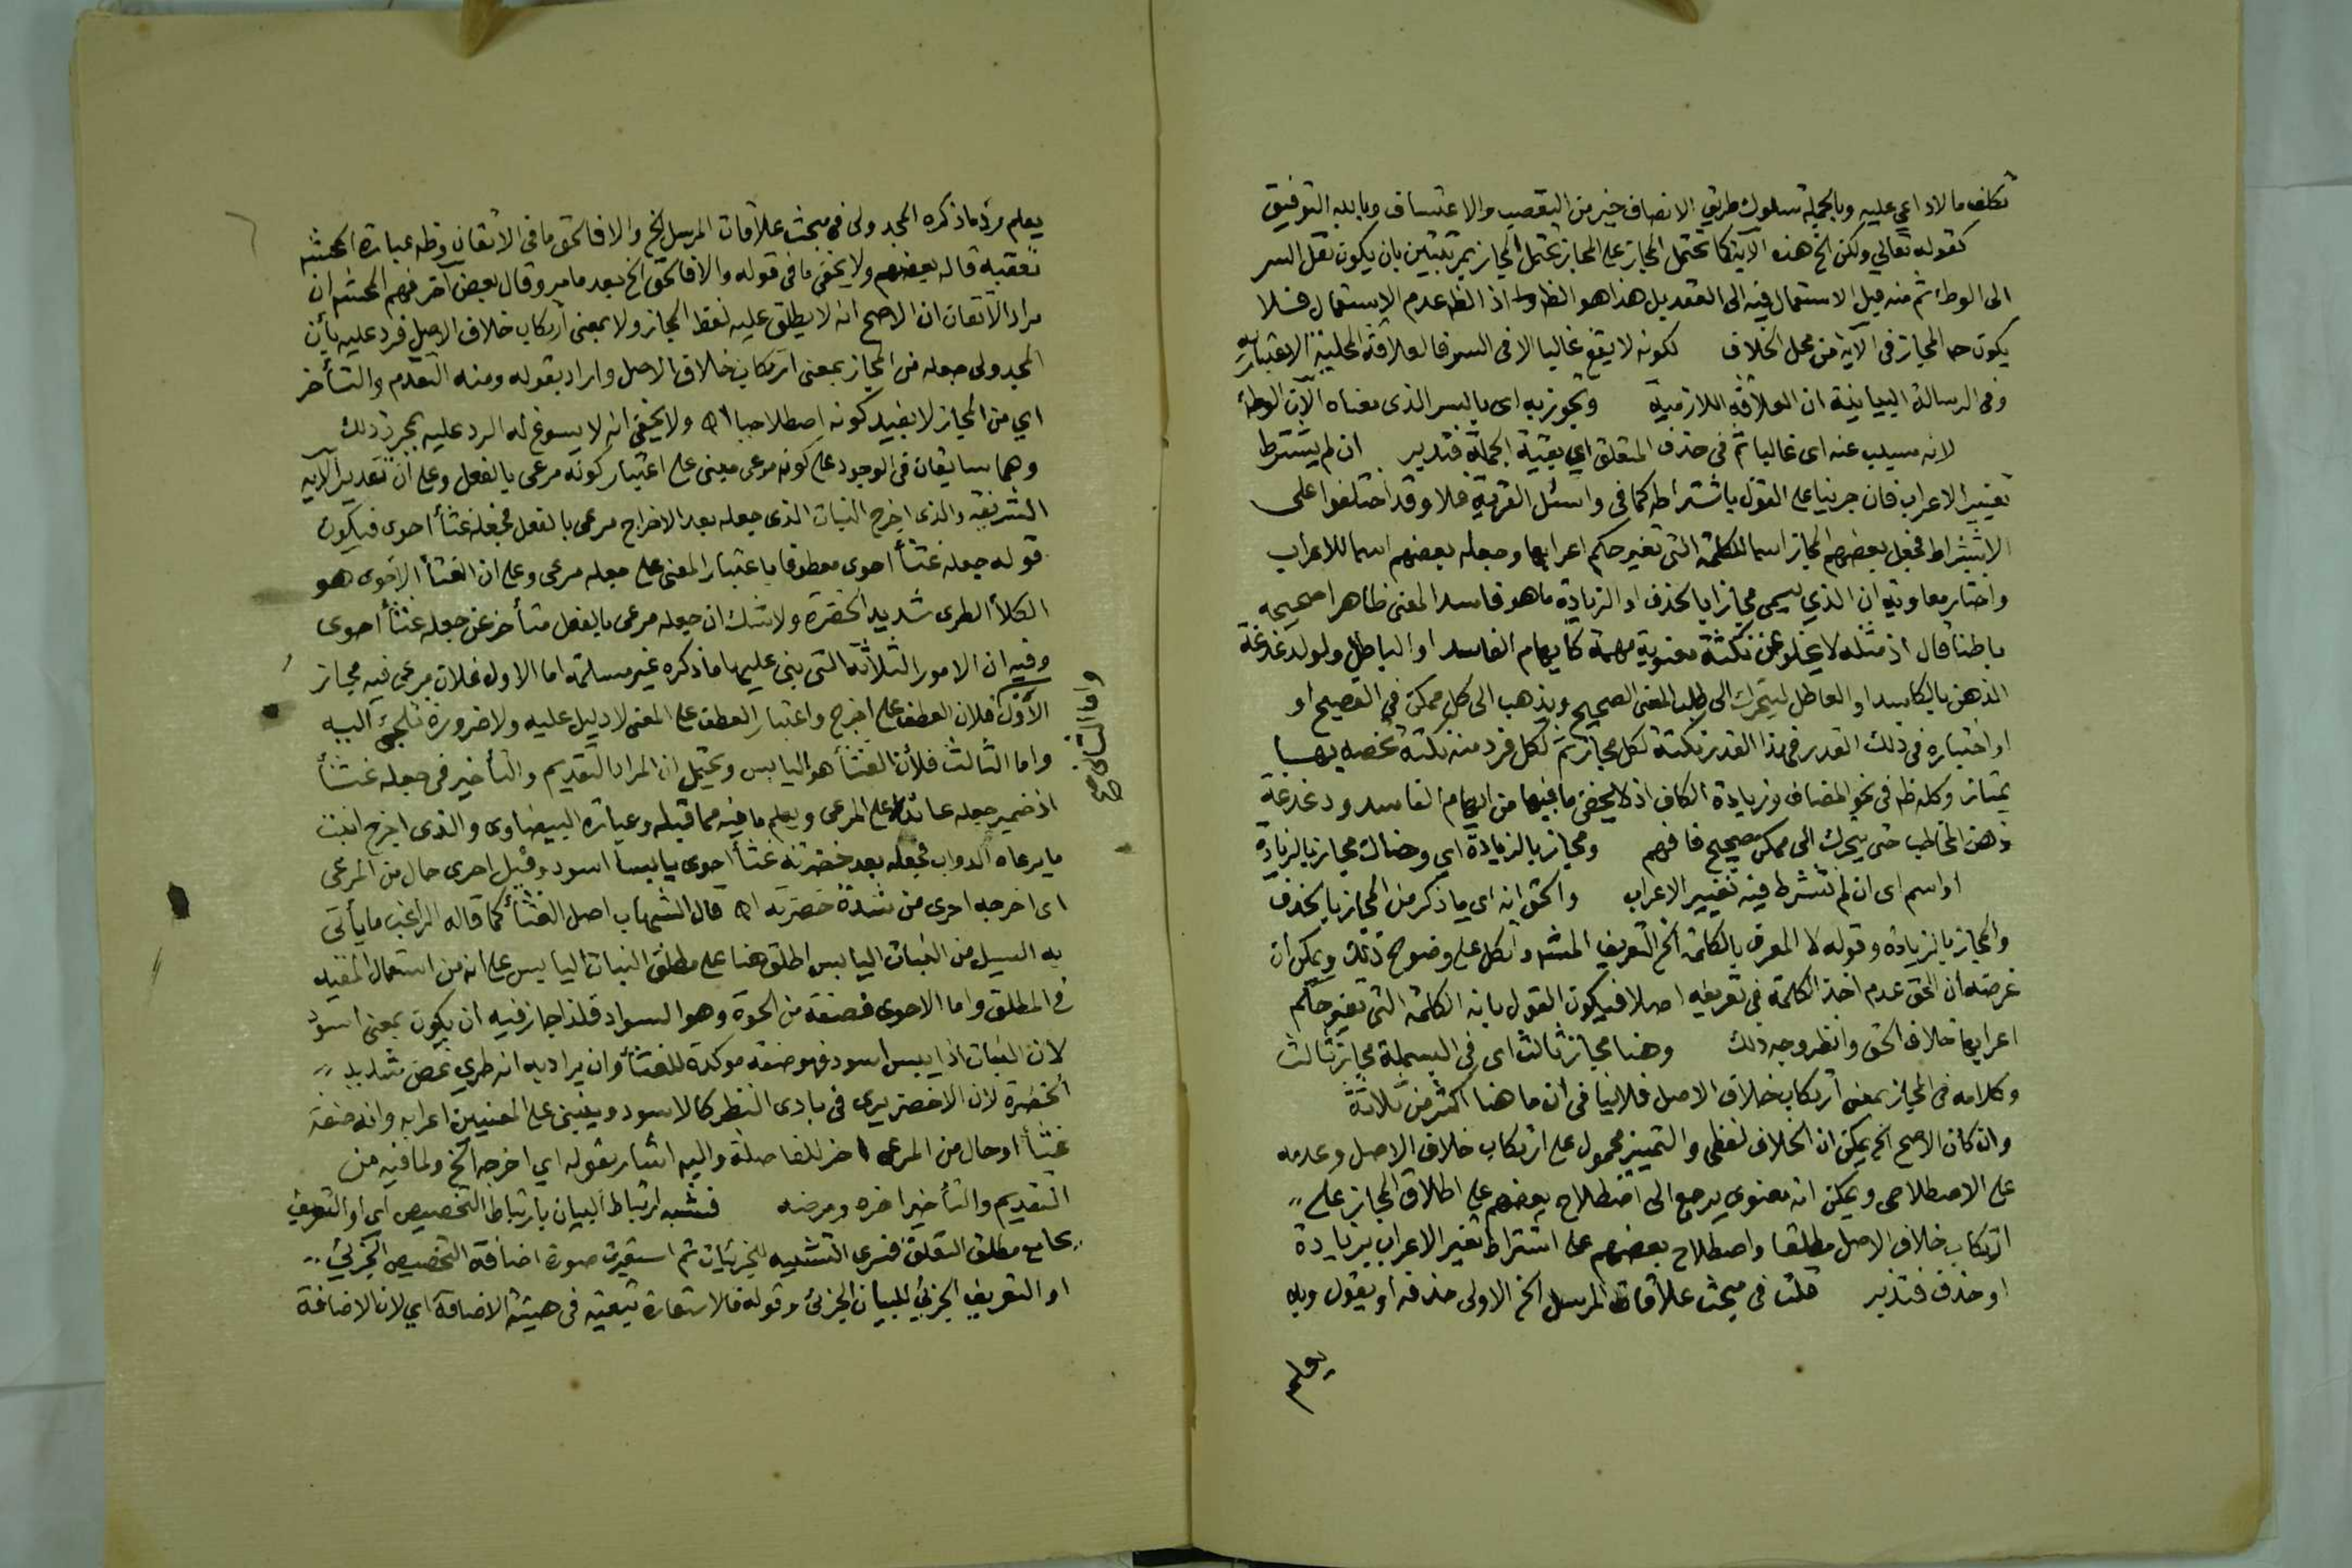 تكلف ما لا داعي عليه وبالجملة سلوك طريق الانصاف خير من التعصب والاعتساف وبالله التوفيق
كقوله تعالى ولكن الخ هذه الآية كما تحتمل المجاز على المجاز تحتمل المجاز بمرتبتين بان يكون نقل السر
الى الوطء ثم منه قبل الاستعمال فيه الى العقد بل هذا هو الظ اذ الظ عدم الاستعمال فلا
يكون حد المجاز في الآية من محل الخلاف لكونه لا يقع غالبا الا في السر فالعلاقة المحلية الاعتبارية
وفي الرسالة البيانية ان العلاقة اللازمية وتجوز به اى بالسر الذى معناه الآن الوطء
لانه مسبب عنه اى غالبا ثم في حذف المتعلق اي بقية الجملة فتدبر ان لم يشترط
تغيير الاعراب فان جرينا على القول باشتراطه كما في واسئل القرية فلا وقد اختلفوا على
الاشتراط فجعل بعضهم المجاز اسما للكلمة التى تغير حكم اعرابها وجعله بعضهم اسما للاعراب
واختار معاوية ان الذي يسمى مجازا بالحذف او الزيادة ما هو فاسد المعنى ظاهرا صحيحه
باطنا قال اذ مثله لا يخلو عن نكتة معنوية مهمة كايهام الفاسد او الباطل ولولد غدغة
الذهن بالكاسد او العاطل ليتحرك الى طلب المعنى الصحيح ويذهب الى كل ممكن في الفصيح او
اختباره في ذلك القدر في هذا القدر نكتة لكل مجاز ثم لكل فرد منه نكتة تخصه بها
يمتاز وكله ظ في نحو المضاف وزيادة الكاف اذ لا يخفى ما فيها من ايهام الفاسد ودغدغة
ذهن المخاطب حتى يتحرك الى ممكن صحيح فافهم ومجاز بالزيادة اي وهناك مجاز بالزيادة
او اسم اى ان لم نشترط فيه تغيير الاعراب والحق انه اى ما ذكر من المجاز بالحذف
والمجاز بالزيادة وقوله لا المعرف بالكلمة الخ التعريف المش واتكل على وضوح ذلك ويمكن ان
غرضه ان الحق عدم اخذ الكلمة في تعريفه اصلا فيكون القول بانه الكلمة التى تغير حكم
اعرابها خلاف الحق وانظر وجه ذلك وهنا مجاز ثالث اى في البسملة مجاز ثالث
وكلامه في المجاز بمعنى ارتكاب خلاف الاصل فلا ينافى ان ما هنا اكثر من ثلاثة
وان كان الاصح الخ يمكن ان الخلاف لفظي والتمييز محمول على ارتكاب خلاف الاصل وعدمه
على الاصطلاحي ويمكن انه معنوي يرجع الى اصطلاح بعضهم على اطلاق المجاز على
ارتكاب خلاف الاصل مطلقا واصطلاح بعضهم على اشتراط تغير الاعراب بزيادة
او حذف فتدبر قلت في مبحث علاقات المرسل الخ الاولى حذفه او يقول وبه
يعلم
يعلم رد ما ذكره المجدولى في مبحث علاقات المرسل الخ والا فالحق ما في الاتقان وظ عبارة المحشى
تعقبه قاله بعضهم ولا يخفى ما في قوله والا فالحق الخ بعد ما مر وقال بعض آخر فهم المحشى ان
مراد الاتقان ان الاصح انه لا يطلق عليه لفظ المجاز ولا بمعنى ارتكاب خلاف الاصل فرد عليه بأن
المجدولى جعله من المجاز بمعنى ارتكاب خلاف الاصل واراد بقوله ومنه التقدم والتأخر
اي من المجاز لا بقيد كونه اصطلاحيا اه ولا يخفى انه لا يسوغ له الرد عليه بمجرد ذلك
وهما سابقان في الوجود على كونه مرعى مبنى على اعتبار كونه مرعى بالفعل وعلى ان تقدير الآية
الشريفة والذى اخرج النبات الذى جعله بعد الاخراج مرعى بالفعل فجعله غثأ احوى فيكون
قوله جعله غثأ احوى معطوفا باعتبار المعنى على جعله مرعى وعلى ان الغثأ الاحوى هو
الكلأ الطرى شديد الخضرة ولا شك ان جعله مرعى بالفعل متأخر عن جعله غثأ احوى
وفيه ان الامور الثلاثة التى بنى عليها ما ذكره غير مسلمة اما الاول فلان مرعى فيه مجاز
الأوْل فلان العطف على اخرج واعتبار العطف على المعنى لا دليل عليه ولا ضرورة تلجئ اليه
واما الثالث فلأن الغثأ هو اليابس ويحتمل ان المراد التقديم والتأخير في جعله غثأ
اذ ضمير جعله عائد على المرعى ويعلم ما فيه مما قبله وعبارة البيضاوى والذى اخرج انبت
ما يرعاه الدواب فجعله بعد خضرته غثأ احوى يابسا اسود وقيل احوى حال من المرعى
اى اخرجه احوى من شدة خضرته اه قال الشهاب اصل الغثأ كما قاله الراغب ما يأتى
به السيل من النبات اليابس اطلق هنا على مطلق النبات اليابس على انه من استعمال المقيد
في المطلق واما الاحوى فصفة من الحوة وهو السواد فلذا جاز فيه ان يكون بمعنى اسود
لان النبات اذا يبس اسود فهو صفة موكدة للغثأ وان يراد به انه طري غض شديد
الخضرة لان الاخضر يرى في بادى النظر كالاسود وينبنى على المعنيين اعرابه وانه صفة
غثأ او حال من المرعى اخر للفاصلة واليه اشار بقوله اي اخرجه الخ ولما فيه من
التقديم والتأخير اخره ومرضه فشبه ارتباط البيان بارتباط التخصيص اى او التعريف
بجامع مطلق التعلق فسرى التشبيه للجزئيات ثم استعيرت صورة اضافة التخصيص الجزئي
او التعريف الجزئى للبيان الجزئى وقوله فالاستعارة تبعية في هيئة الاضافة اي لان الاضافة
واما الثانى